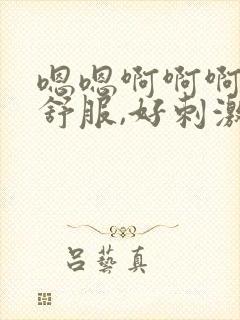 嗯嗯啊啊啊
舒服,好刺激
吕艺真